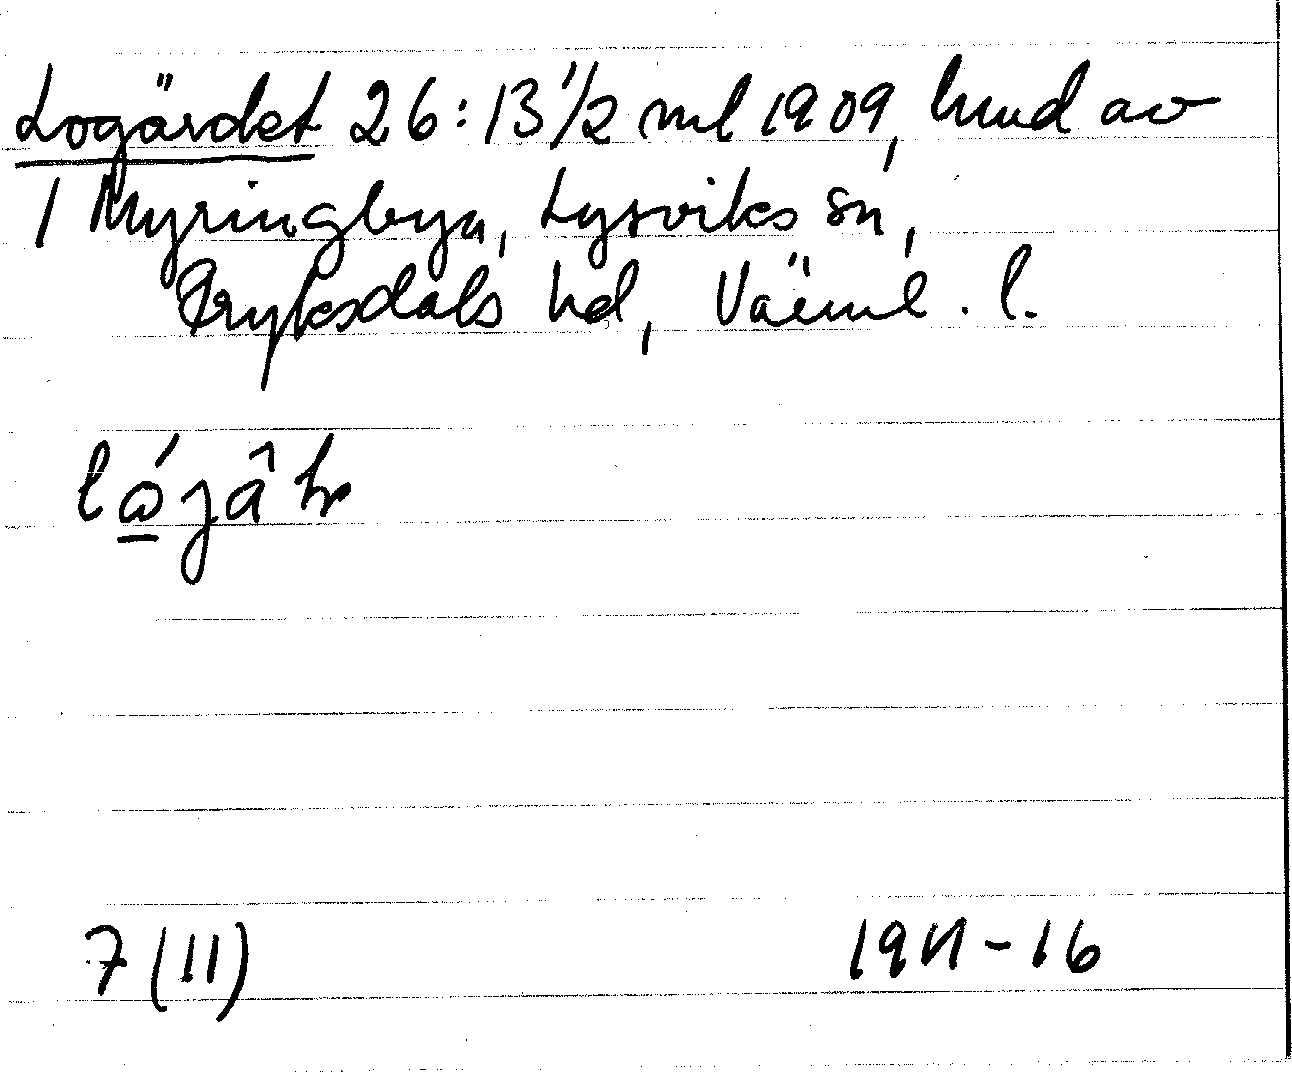 Logärdet 26:13 1/2 ml 1909, hmd av
1 Myringbyn, Lysviks sn,
Fryksdals hd, Värml. l.
7 (11)
1911-16